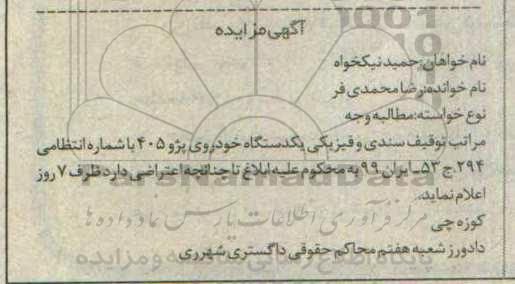 آگهی مزایده
نام خواهان: حمید نیکخواه
نام خوانده: رضا محمدی فر
نوع خواسته: مطالبه وجه
مراتب توقیف سندی و فیزیکی یکدستگاه خودروی پژو ۴۰۵ با شماره انتظامی
۲۹۴.ج ۵۳_ایران ۹۹ به محکوم علیه ابلاغ تا چنانچه اعتراضی دارد ظرف ۷ روز
اعلام نماید.
کوزه چی
دادورز شعبه هفتم محاکم حقوقی داگستری شهرری
ParsNamadData
مرکز فرآوری اطلاعات پارس نماد داده ها